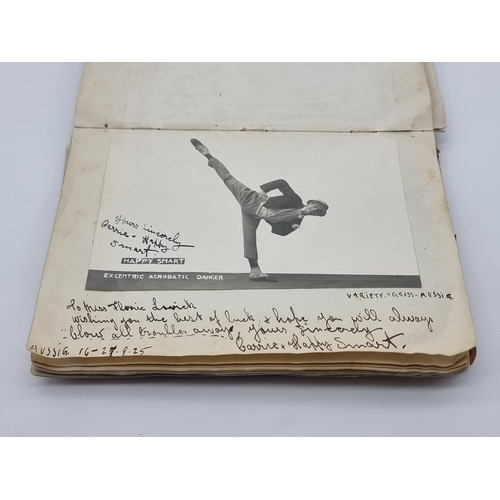 Yours Sincerely
Carrie + Happy
Smart
HAPPY SMART
EXCENTRIC ACROBATIC DANCER
VARIETY. + GEISS. AUSSIG
To Miss
wishing you the best of luck + hope you will always
blow all troubles away, yours Sincerely
Carrie + Happy Smart.
AUSSIG. 16 - 9. 25